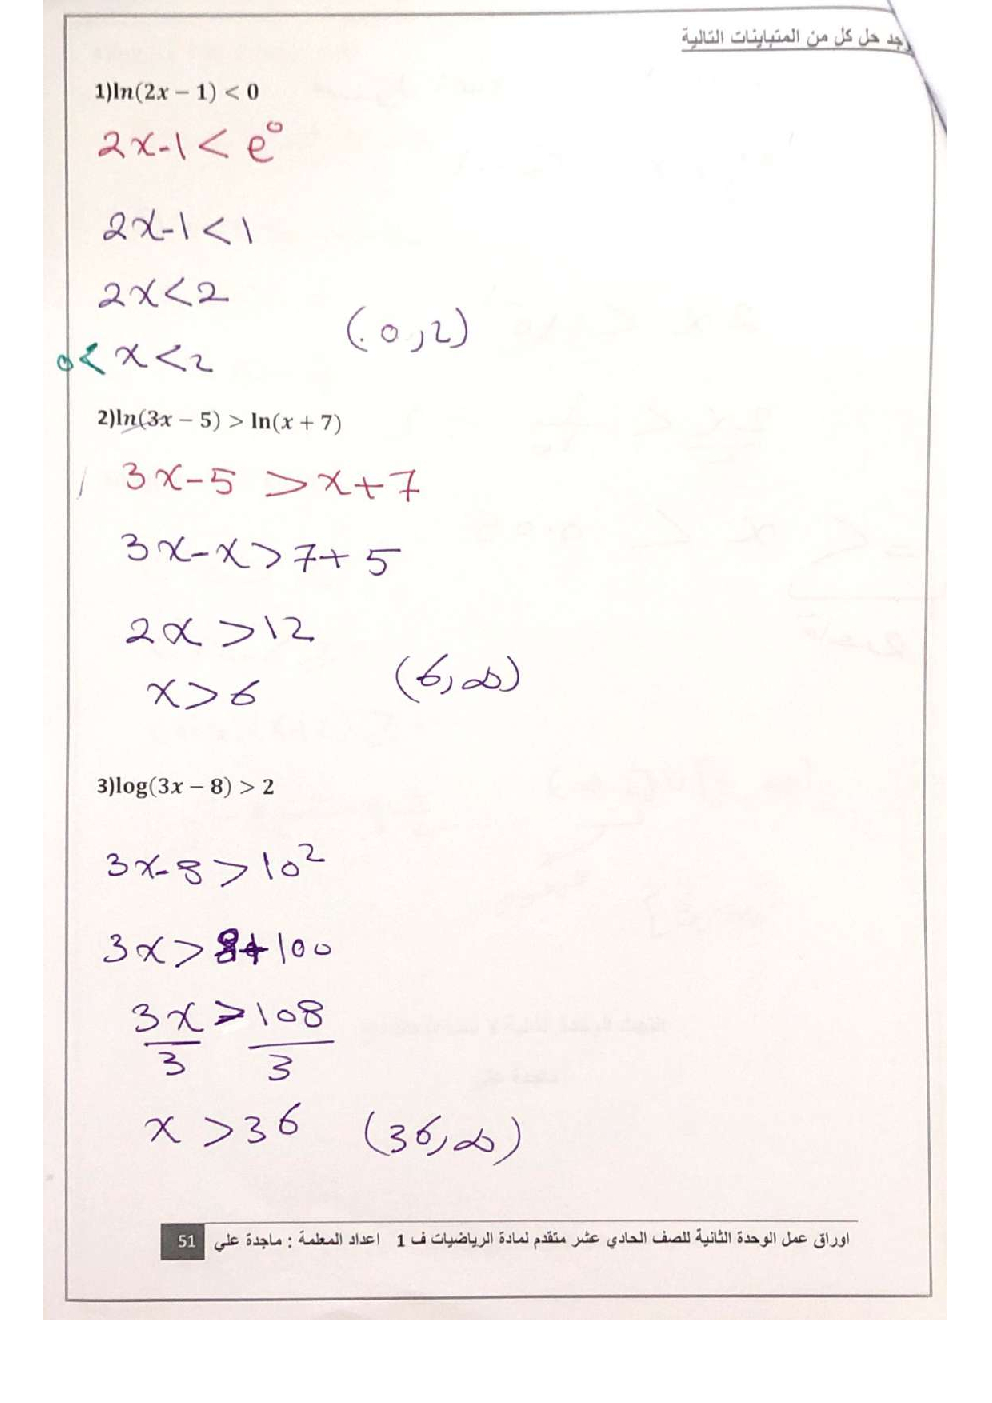 جد حل كل من المتباينات التالية
1)ln(2x − 1) < 0
2x-1 < e⁰
2x-1 < 1
2x < 2
(0,2)
0 < x < 2
2)ln(3x − 5) > ln(x + 7)
3x-5 > x+7
3x-x > 7+5
2x > 12
x > 6 (6,∞)
3)log(3x − 8) > 2
3x-8 > 10²
3x > 8+100
3x > 108
3 3
x > 36 (36,∞)
اوراق عمل الوحدة الثانية للصف الحادي عشر متقدم لمادة الرياضيات ف 1 اعداد المعلمة : ماجدة علي 51